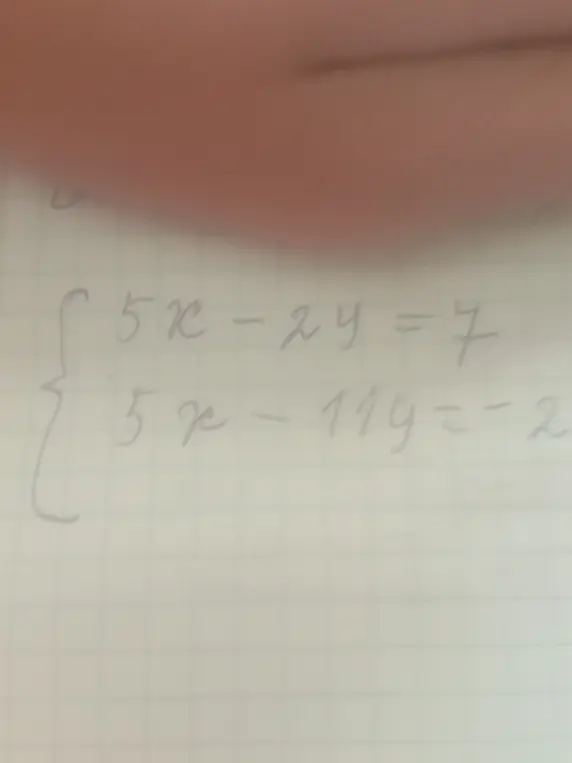 5x - 2y = 7
5x - 11y = -2